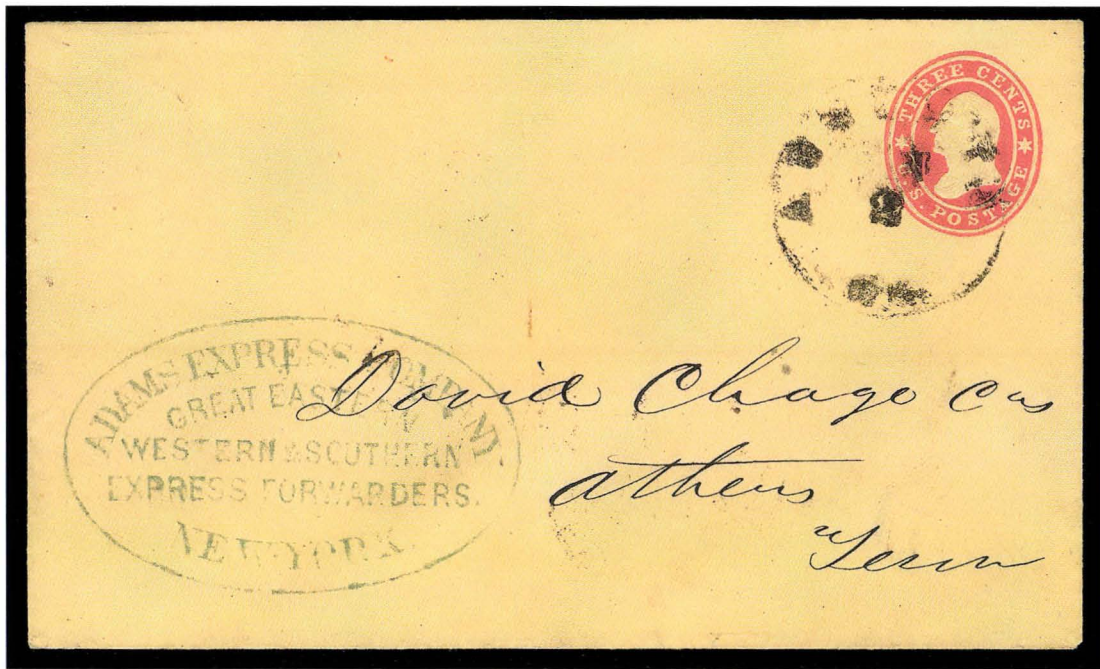 THREE CENTS
U.S. POSTAGE
2
ADAMS EXPRESS COMPANY.
GREAT EASTERN
WESTERN & SOUTHERN
EXPRESS FORWARDERS.
NEW-YORK.
David Chago Cas
Athens
Tenn